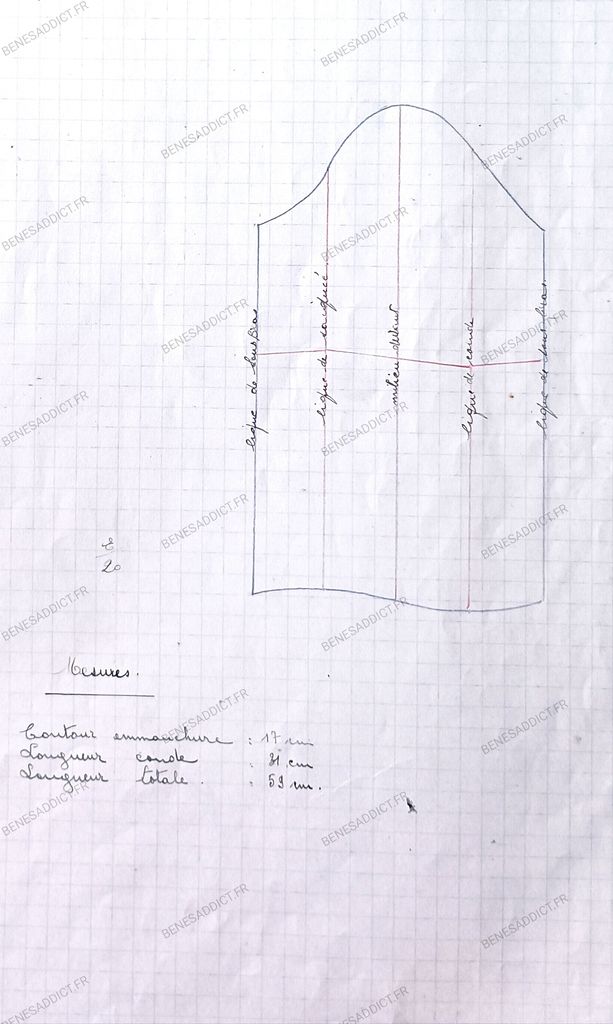 BENESADDICT.FR
ligne de sous bras
ligne de saignée
milieu devant
ligne de coude
ligne de sous bras
20
Mesures.
Contour emmanchure : 17 cm
Longueur coude : 31 cm
Longueur totale : 59 cm.